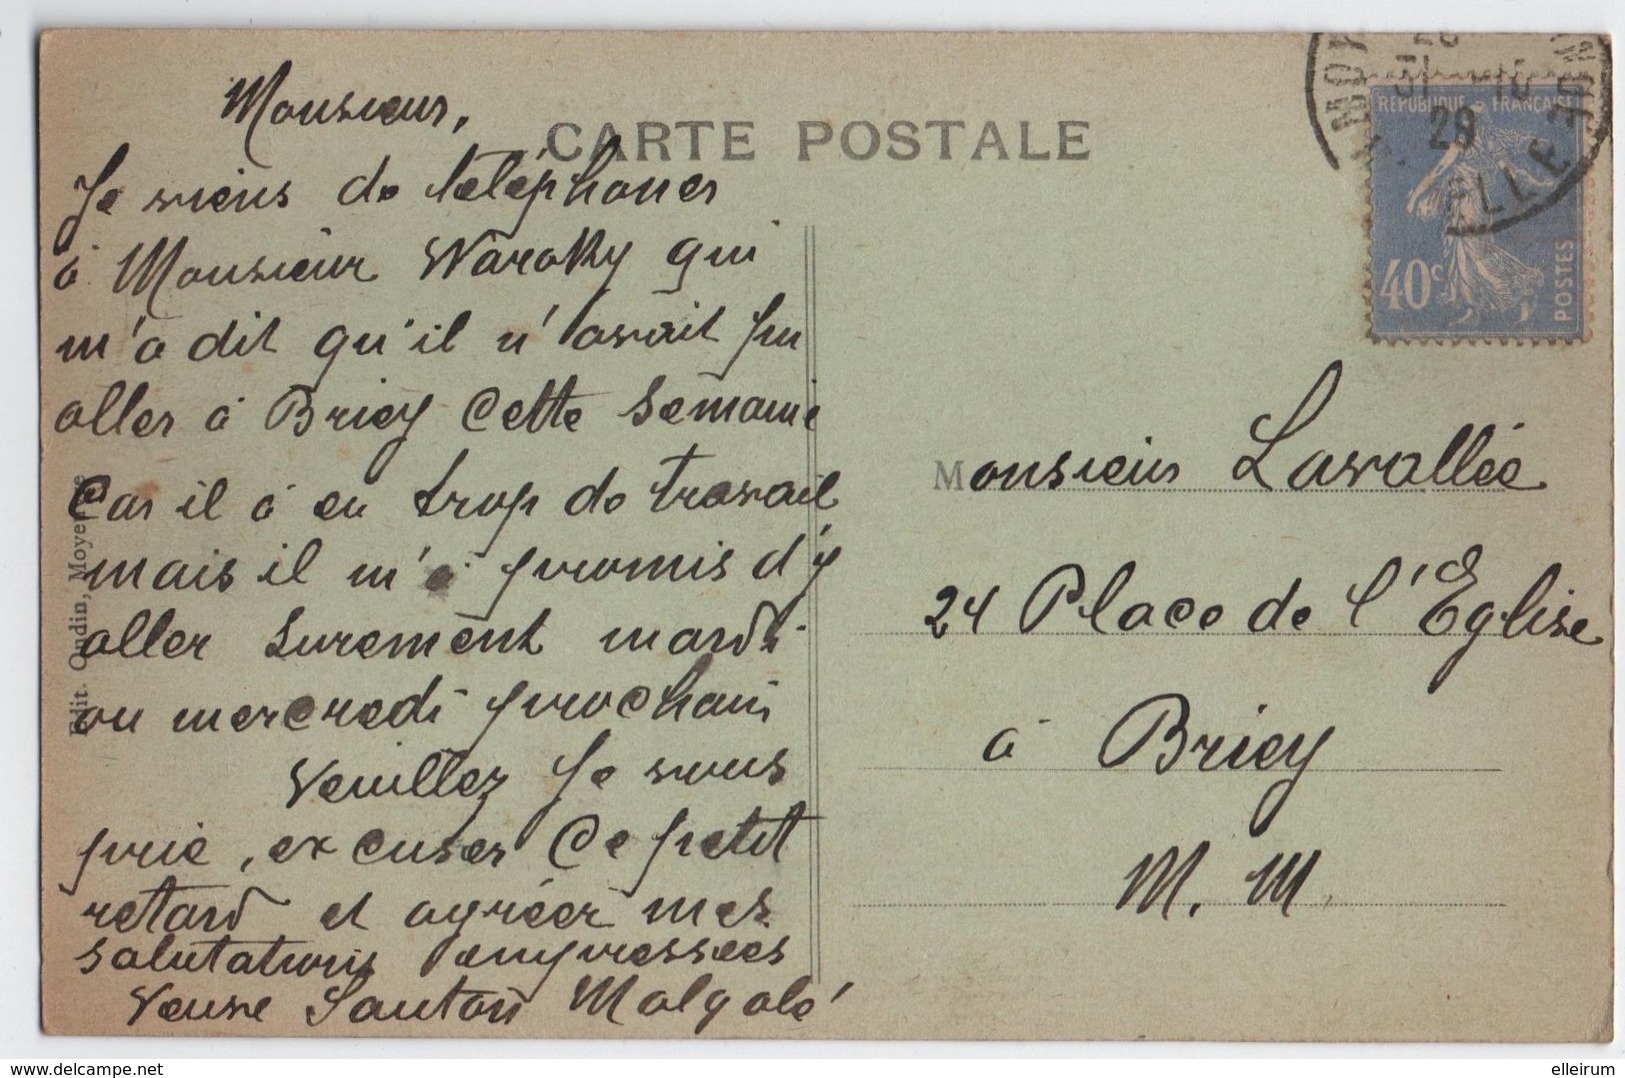 CARTE POSTALE
Monsieur,
Je viens de téléphoner
à Monsieur Waroky qui
m'a dit qu'il n'avait pu
aller à Briey cette semaine
car il a eu trop de travail
mais il m'a promis d'y
aller surement mardi
ou mercredi prochain
Veuillez je vous
prie, excuser ce petit
retard et agréer mes
salutations empressées
Veuve Santon Malgalé
Edit. Oudin, Moyeuvre
RÉPUBLIQUE FRANÇAISE
40c
POSTES
29
Monsieur Lavallée
24 Place de l'Eglise
à Briey
M. M.
delcampe.net
elleirum